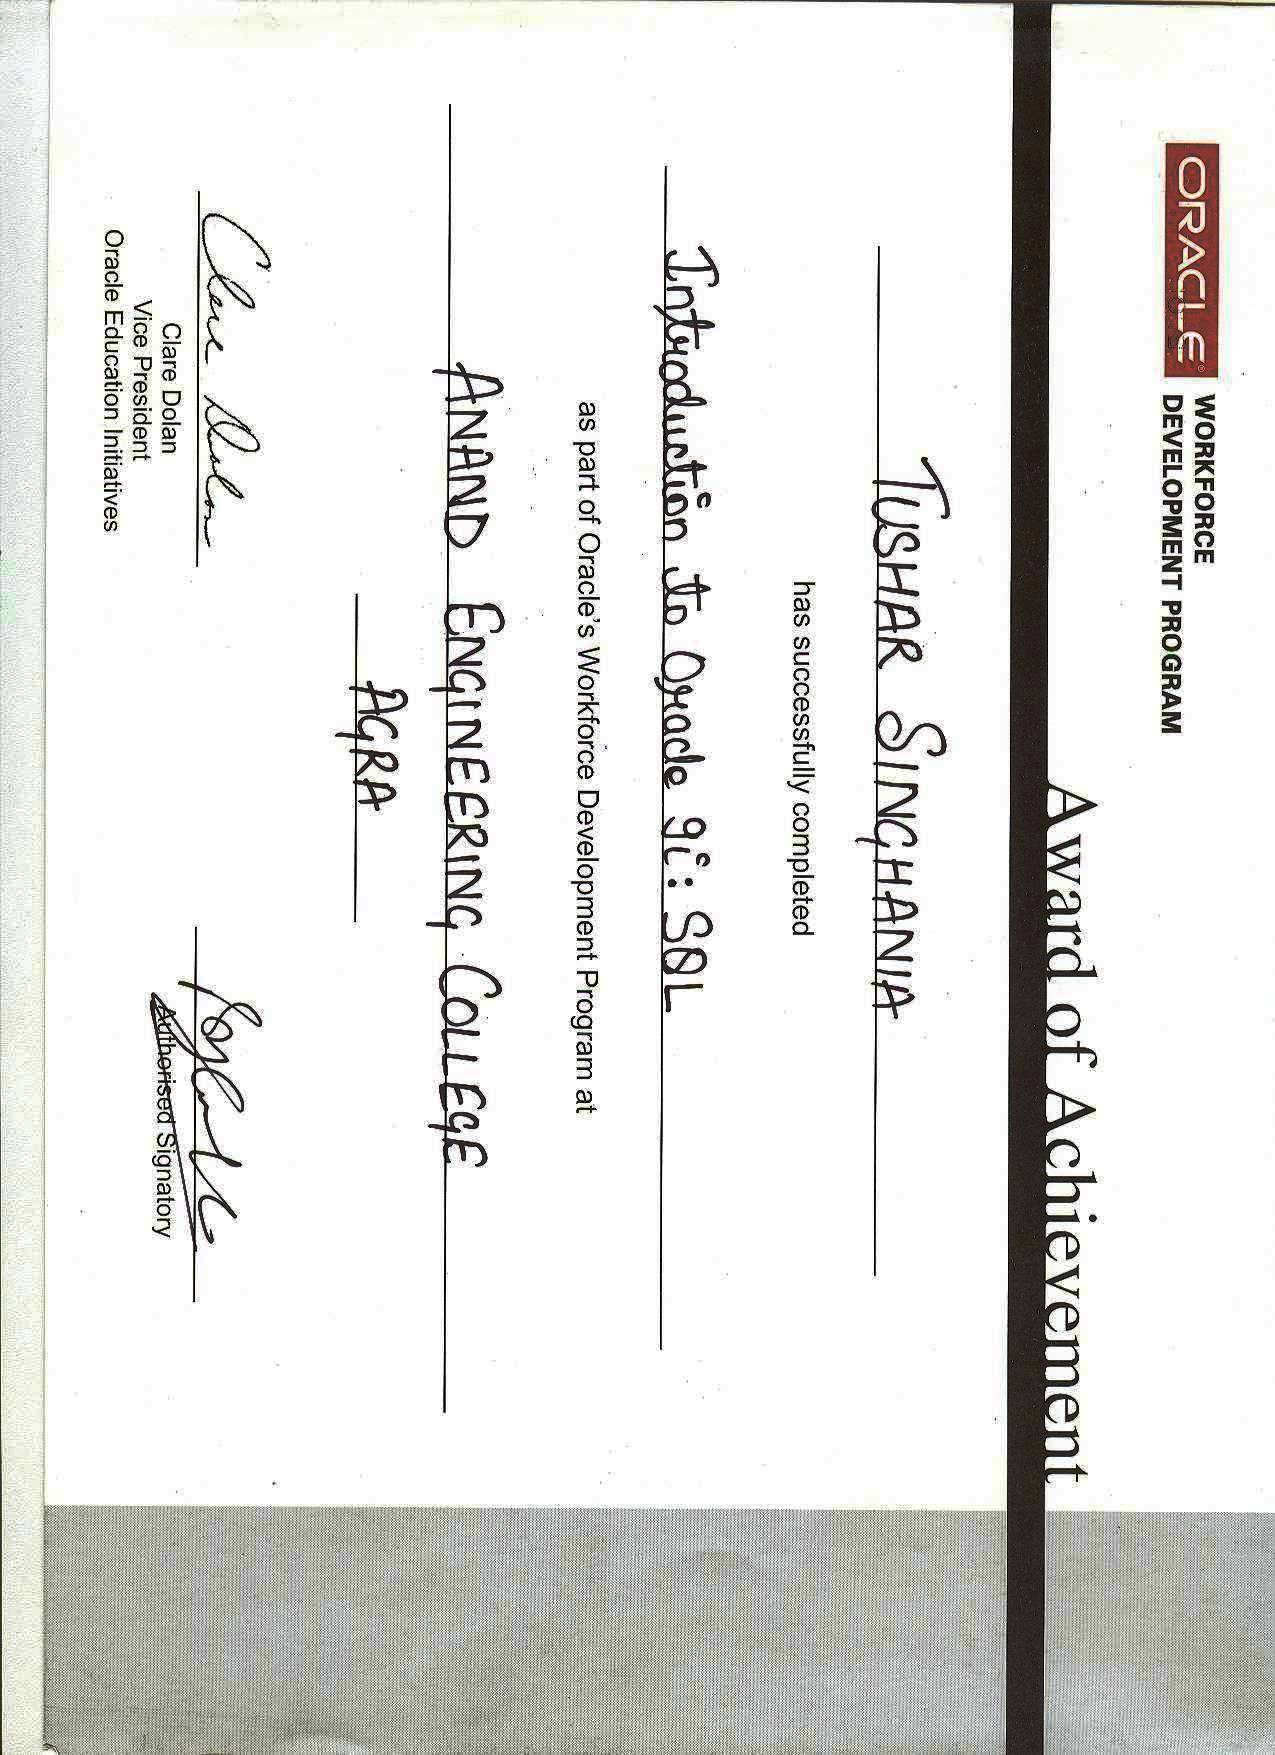 ORACLE®
WORKFORCE
DEVELOPMENT PROGRAM
Award of Achievement
TUSHAR SINGHANIA
has successfully completed
Introduction to Oracle 9i: SQL
as part of Oracle's Workforce Development Program at
ANAND ENGINEERING COLLEGE
AGRA
Clare Dolan
Clare Dolan
Vice President
Oracle Education Initiatives
Authorised Signatory